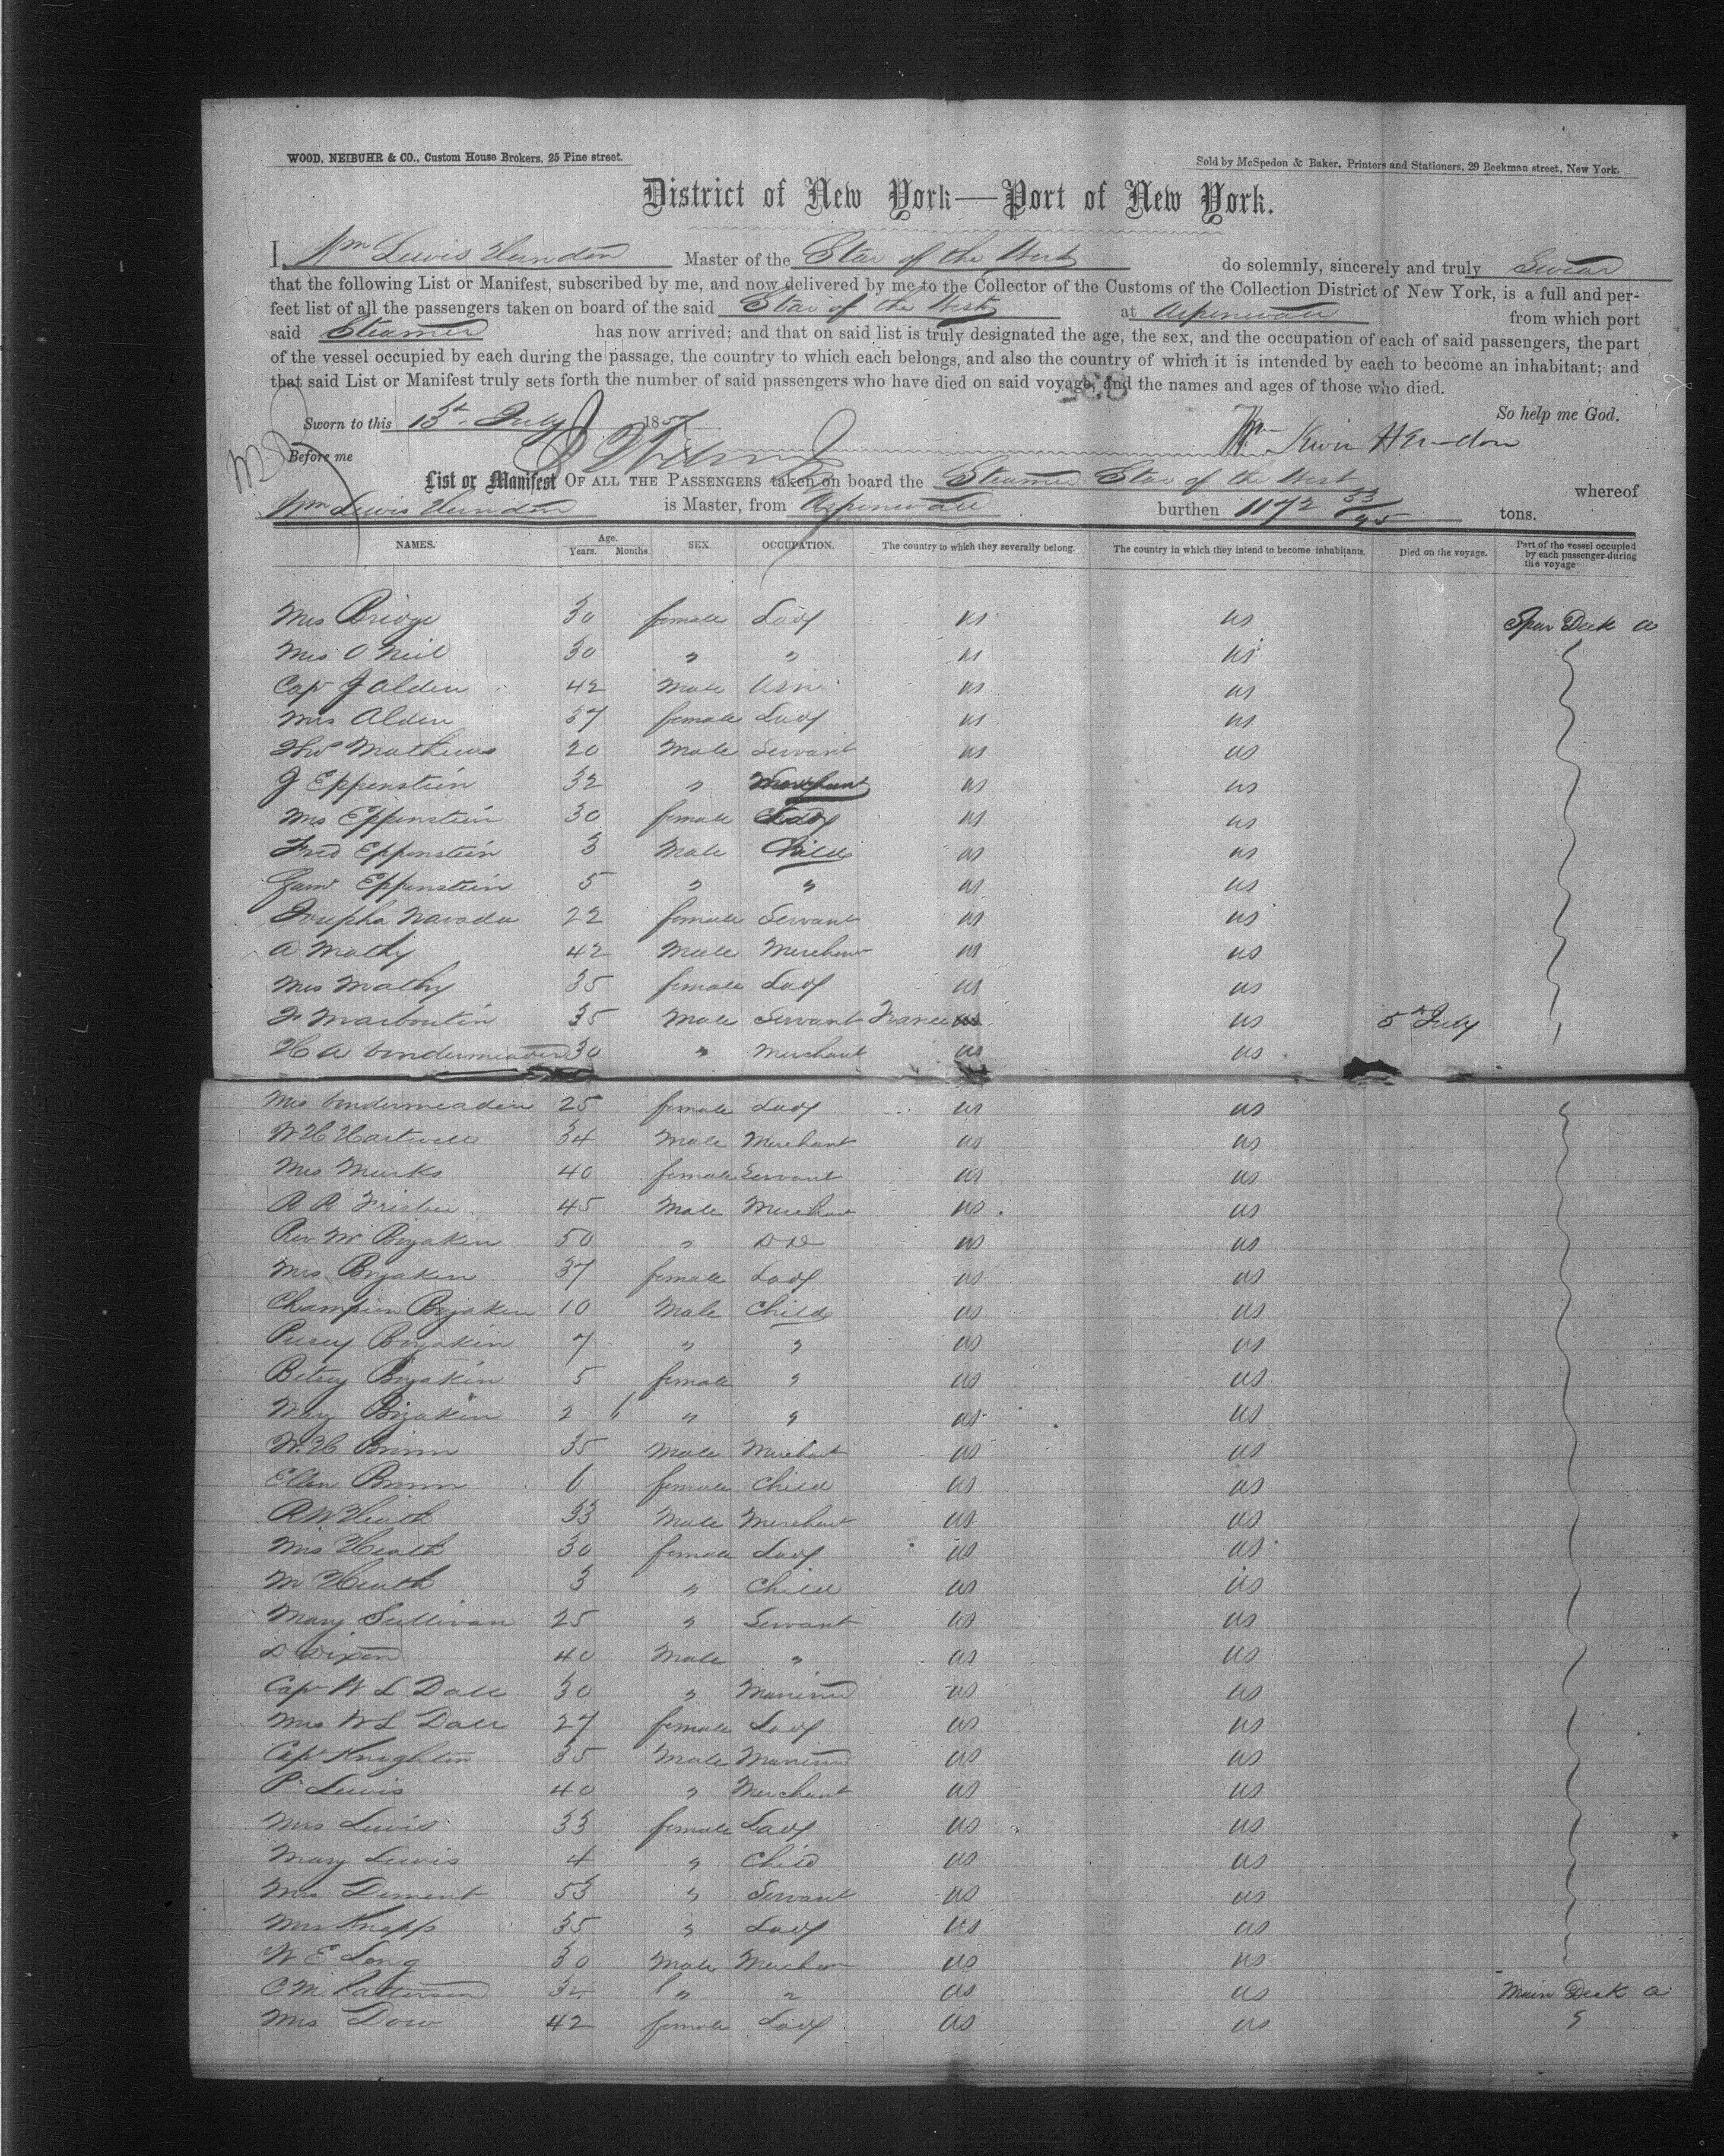 WOOD, NEIBUHR & CO., Custom House Brokers, 25 Pine street.
Sold by McSpedon & Baker, Printers and Stationers, 29 Beekman street, New York.
District of New York—Port of New York.
I, Wm Lewis Herndon Master of the Star of the West do solemnly, sincerely and truly Swear
that the following List or Manifest, subscribed by me, and now delivered by me to the Collector of the Customs of the Collection District of New York, is a full and per-
fect list of all the passengers taken on board of the said Star of the West at Aspinwall from which port
said Steamer has now arrived; and that on said list is truly designated the age, the sex, and the occupation of each of said passengers, the part
of the vessel occupied by each during the passage, the country to which each belongs, and also the country of which it is intended by each to become an inhabitant; and
that said List or Manifest truly sets forth the number of said passengers who have died on said voyage, and the names and ages of those who died.
So help me God.
Sworn to this 13 July 1857
Wm Lewis Herndon
Before me
List or Manifest OF ALL THE PASSENGERS taken on board the Steamer Star of the West whereof
Wm Lewis Herndon is Master, from Aspinwall burthen 1172 33/95 tons.
NAMES. Age. Years. Months. SEX. OCCUPATION. The country to which they severally belong. The country in which they intend to become inhabitants. Died on the voyage. Part of the vessel occupied by each passenger during the voyage
Mrs Bridge 30 female Lady us us Spar Deck a
Mrs O Neil 30 " " us us
Cap J Alden 42 Male us us
Mrs Alden 37 female Lady us us
Mathews 20 Male Servant us us
J Eppenstein 32 " Merchant us us
Mrs Eppenstein 30 female Lady us us
Fred Eppenstein 3 Male Child us us
Eppenstein 5 " " us us
Josepha Navada 22 female Servant us us
A Mathy 42 Male Merchan us us
Mrs Mathy 35 female Lady us us
F Marboutin 35 Male Servant France us 5th July
H A Vandermeaden 30 " Merchant us us
Mrs Vandermeaden 25 female Lady us us
W H Hartwell 34 Male Merchant us us
Mrs Marks 40 female Servant us us
R R Frisbie 45 Male Merchant us us
Rev Mr Boyakin 50 " us us
Mrs Boyakin 37 female Lady us us
Champion Boyakin 10 Male Child us us
Pursy Boyakin 7 " " us us
Betsy Boyakin 5 female " us us
Mary Boyakin 2 " " us us
W. H Brunn 35 Male Merchant us us
Ellen Brunn 6 female Child us us
R W Heath 33 Male Merchant us us
Mrs Heath 30 female Lady us us
M Heath 3 " Child us us
Mary Sullivan 25 " Servant us us
D Dixon 40 Male " us us
Cap W L Dall 30 " Mariner us us
Mrs W L Dall 27 female Lady us us
Cap Knighton 35 Male Mariner us us
P Lewis 40 " Merchant us us
Mrs Lewis 33 female Lady us us
Mary Lewis 4 " Child us us
Mrs Dement 53 " Servant us us
Mrs Knapp 35 " Lady us us
W E Long 30 Male Merchan us us
C M Patterson 34 " " us us Main Deck a
Mrs Dow 42 female Lady us us "